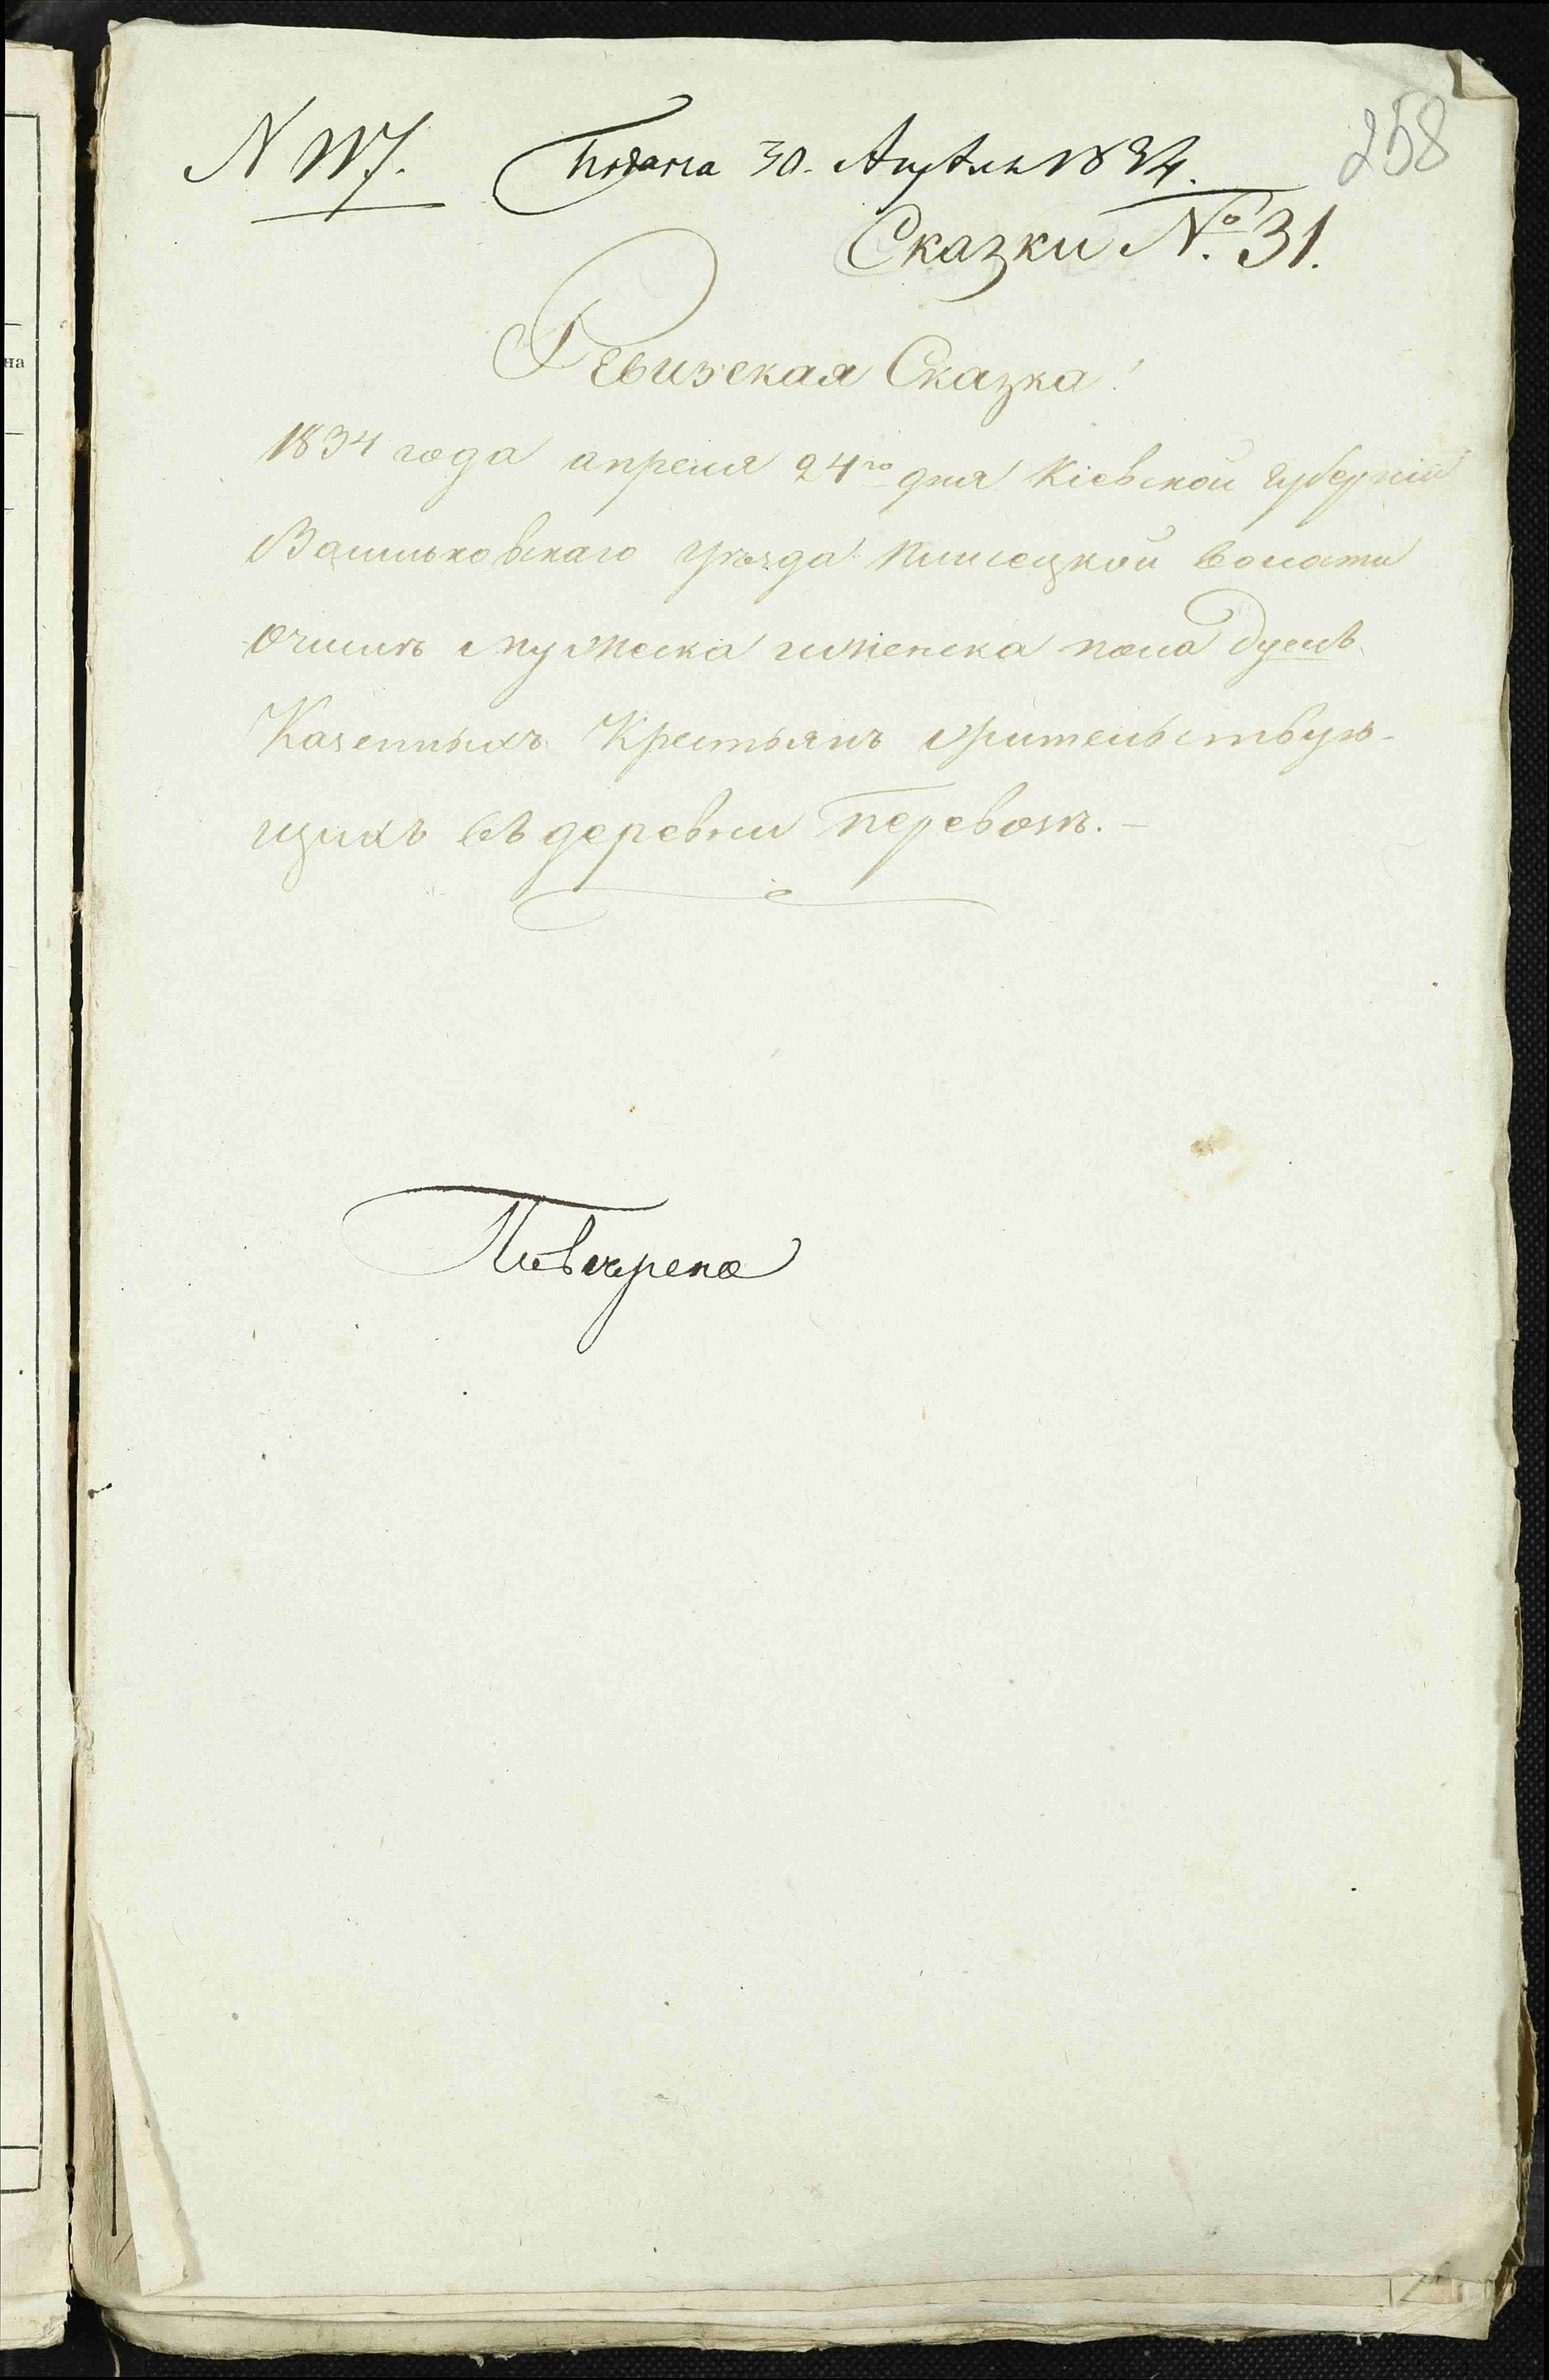 258
N 117. Подана 30. Апрѣля 1834.
Сказки №. 31.
Ревизская Сказка!
1834 года апреля 24го дня Кіевской Губерніи
Васильковскаго уѣзда волости
очислѣ мужеска иженска пола душъ
Казенныхъ Крестьянъ жительствую-
щихъ въ деревни Перевозъ. -
на